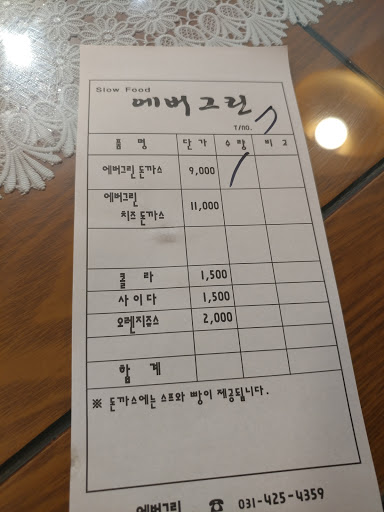 Slow Food
에버그린
T/no. 7
품 명 단 가 수 량 비 고
에버그린 돈까스 9,000 /
에버그린
치즈 돈까스 11,000
콜 라 1,500
사 이 다 1,500
오렌지쥬스 2,000
합 계
※ 돈까스에는 스프와 빵이 제공됩니다.
에버그린 ☎ 031-425-4359